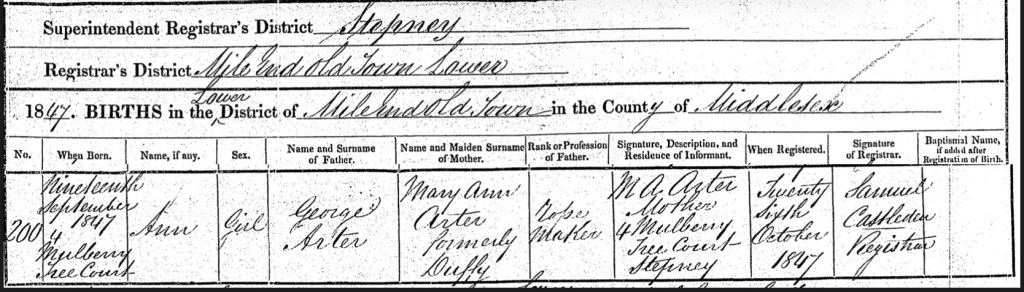 Superintendent Registrar's District Stepney
Registrar's District Mile End Old Town Lower
Lower
1847. BIRTHS in the District of Mile End Old Town in the County of Middlesex
No.
When Born.
Name, if any.
Sex.
Name and Surname
of Father.
Name and Maiden Surname
of Mother.
Rank or Profession
of Father.
Signature, Description, and
Residence of Informant.
When Registered.
Signature
of Registrar.
Baptismal Name,
if added after
Registration of Birth.
200
Nineteenth
September
1847
4
Mulberry
Tree Court
Ann
Girl
George
Arter
Mary Ann
Arter
formerly
Duffy
Rope
Maker
M A Arter
Mother
4 Mulberry
Tree Court
Stepney
Twenty
Sixth
October
1847
Samuel
Castleden
Registrar